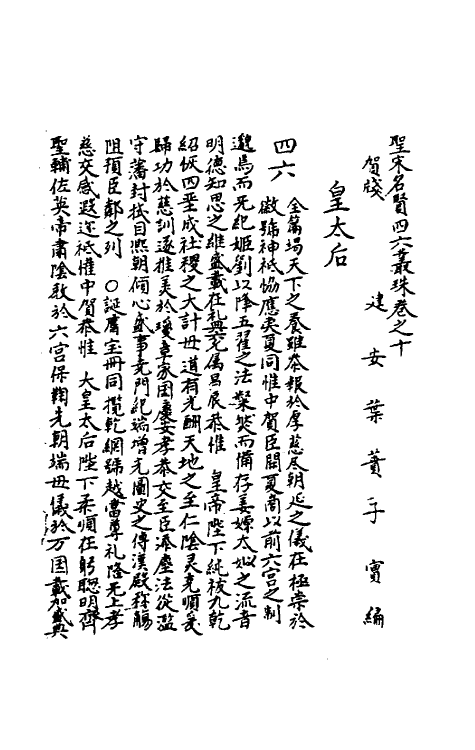 聖宋名賢四六叢珠卷之十
建安葉蕡子實編
賀牋
皇太后
四六
金篇場天下之養雖恭報於厚慈尽朝廷之儀在極崇於
徽號神祗恊應夷夏同惟中賀臣聞夏商以前六宫之制
邈焉而无紀姬劉以降五翟之法粲然而備存姜嫄太姒之流音
明德知思之雄盛載在礼典允属昌辰恭惟 皇帝陛下純被九乾
紹恢四聖成社稷之大計毋道有光酬天地之至仁陰灵克順爰
歸功於慈訓遂推美於瓊章家国慶安孝恭交至臣添塵法從濫
守藩封抵目熙朝傾心盛事尭門紀端增光圖史之傳漢殿称觴
阻預臣鄰之列 ○誕膺宝冊同攬乾綱號越當尊礼隆无上孝
慈交感遐迩祗惟中賀恭惟 大皇太后陛下柔順在躬聦明齊
聖輔佐英帝肃陰教於六宫保鞠先朝端毋儀於万国載加盛典